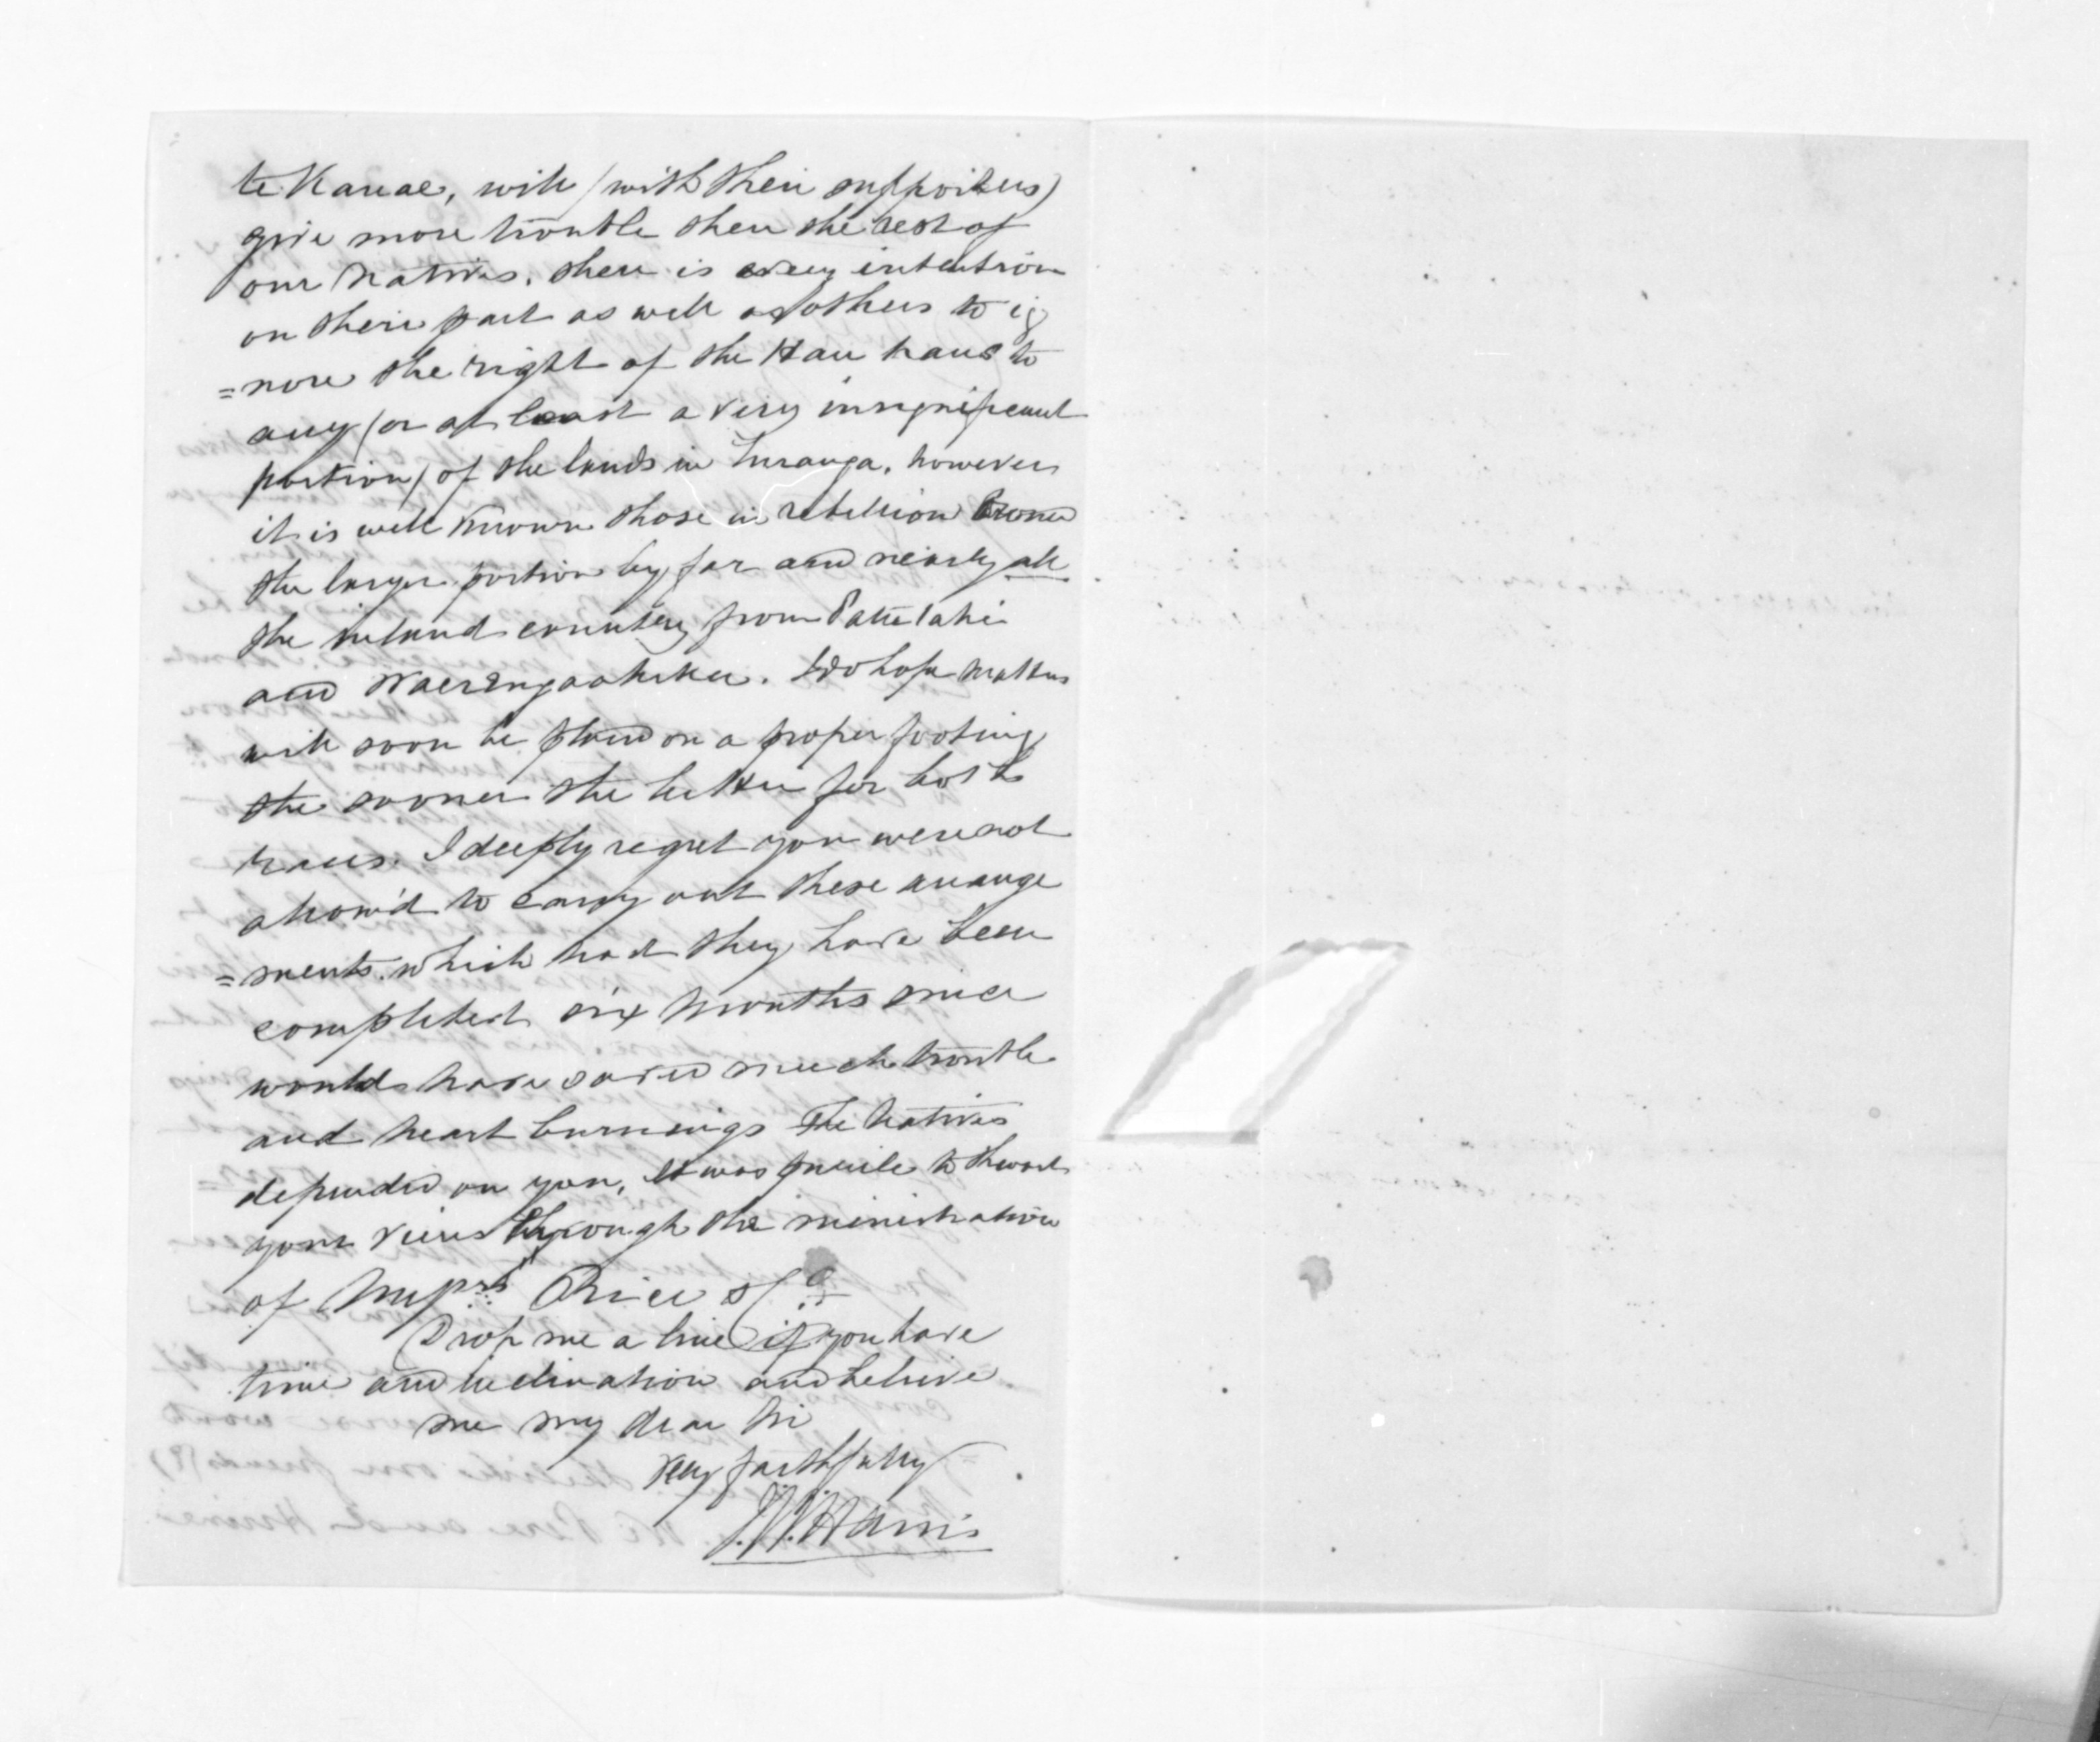 te Kanae, will (with their supporters)
give more trouble then the rest of
our Natives. there is every intention
on their part as well as others to ig
=nore the right of the Hau haus to
any (or at least a very insignificant
portion) of the lands in Turanga. however
it is well known those in rebellion owned
the larger portion by far and nearly all
the inland country from Patutahi
and Waerengaahika. I do hope matters
will soon be placed on a proper footing
the sooner the better for both
races. I deeply regret you were not
allow'd to carry out these arrange
=ments. which had they have been
completed six months since
would have saved much trouble
and heart burnings The Natives
depended on you, it was puerile to thwart
your views through the ministration
of Messrs Rice & Co
Drop me a line if you have
time and inclination and believe
me my dear Sir
very faithfully
J.W. Harris